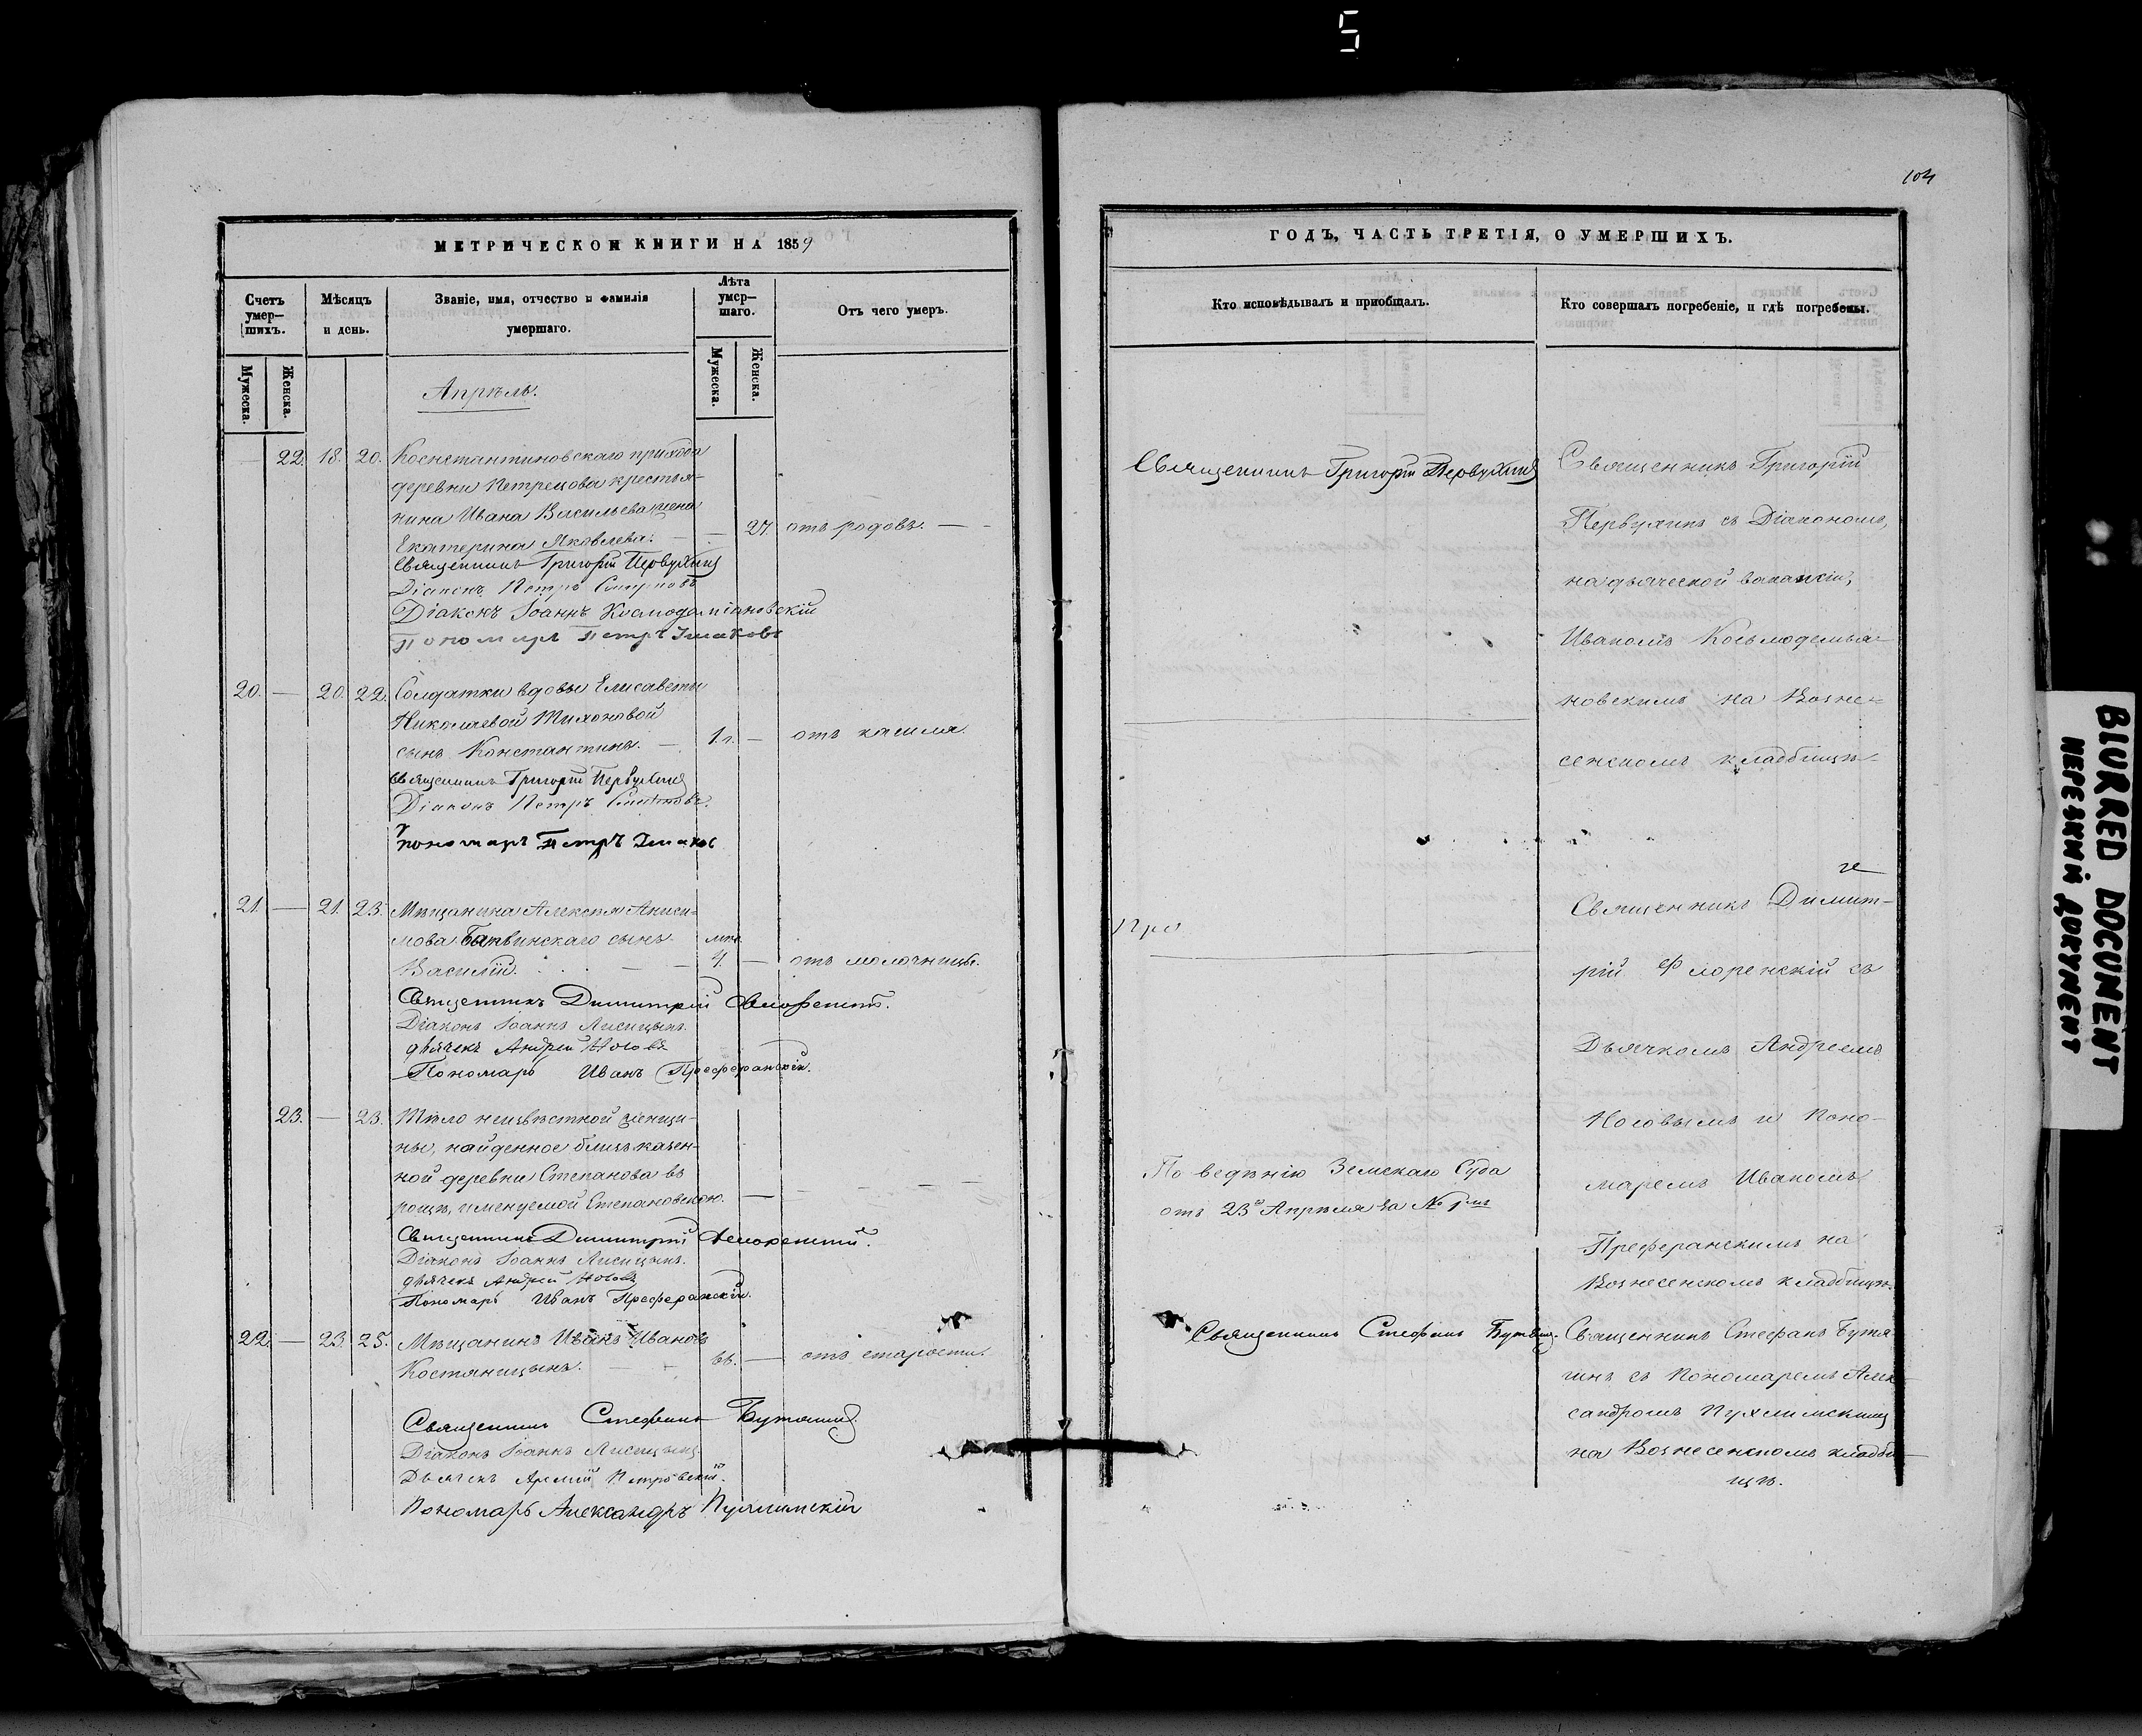 5
104
МЕТРИЧЕСКОЙ КНИГИ НА 1859
Счетъ умер— шихъ.
Мѣсяцъ и день.
Званіе, имя, отчество и фамилія умершаго.
Лѣта умер— шаго.
Отъ чего умеръ.
Мужеска.
Женска.
Мужеска.
Женска.
Апрѣль.
22. 18. 20. Коснстантиновскаго прихода
деревни Петрецова крестья-
нина Ивана Васильева жена
Екатерина Яковлева. — 27. отъ родовъ. —
Священникъ Григорій Первухинъ
Діаконъ Петръ
Діаконъ Іоаннъ Космодаміановскій
Пономарь Петръ
20. — 20. 22. Солдатки вдовы Елисаветы
Николаевой Тихоновой
сынъ Константинъ. — 1 г. — отъ кашля.
Священникъ Григорій Первухинъ
Діаконъ Петръ
пономарь Петръ
21. — 21. 23. Мѣщанина Алексѣя Аниси-
мова сынъ мѣс.
Василій. — 4. — отъ молочницы.
Священникъ Димитрій Флоренскій.
Діаконъ Іоаннъ Лисицынъ.
дьячекъ Андрей Носовъ
Пономарь Иванъ Преферанскій.
23. — 23. Тѣло неизвѣстной женщи-
ны, найденное близъ казен-
ной деревни Степанова въ
рощѣ, именуемой Степановскою. — — — —
Священникъ Димитрій Флоренскій.
Діаконъ Іоаннъ Лисицынъ.
дьячекъ Андрей Носовъ
Пономарь Иванъ Преферанскій.
22. — 23. 25. Мѣщанинъ Иванъ Ивановъ
Костяницынъ. — — — отъ старости.
Священникъ Стефанъ Бутягинъ.
Діаконъ Іоаннъ Лисицынъ.
Дьячекъ Петровскій.
Пономарь Александръ Пухлимскій
ГОДЪ, ЧАСТЬ ТРЕТІЯ, О УМЕРШИХЪ.
Кто исповѣдывалъ и пріобщалъ.
Кто совершалъ погребеніе, и гдѣ погребены.
Священникъ Григорій Первухинъ
Священникъ Григорій
Первухинъ съ Діакономъ,
на дьяческой вакансіи,
Иваномъ Косьмодемья-
новскимъ на Возне-
сенскомъ кладбищѣ.
Священникъ Димит-
рій Флоренскій съ
Дьячкомъ Андреемъ
Носовымъ и Поно-
По веденію Земскаго Суда
маремъ Иваномъ
отъ 23го Апрѣля за №
Преферанскимъ на
Вознесенскомъ кладбищѣ.
Священникъ Стефанъ Бутягинъ.
Священникъ Стефанъ Бутя-
гинъ съ Пономаремъ Алек-
сандромъ Пухлимскимъ
на Вознесенскомъ кладби-
щѣ.
BLURRED DOCUMENT
НЕРЕЗКИЙ ДОКУМЕНТ